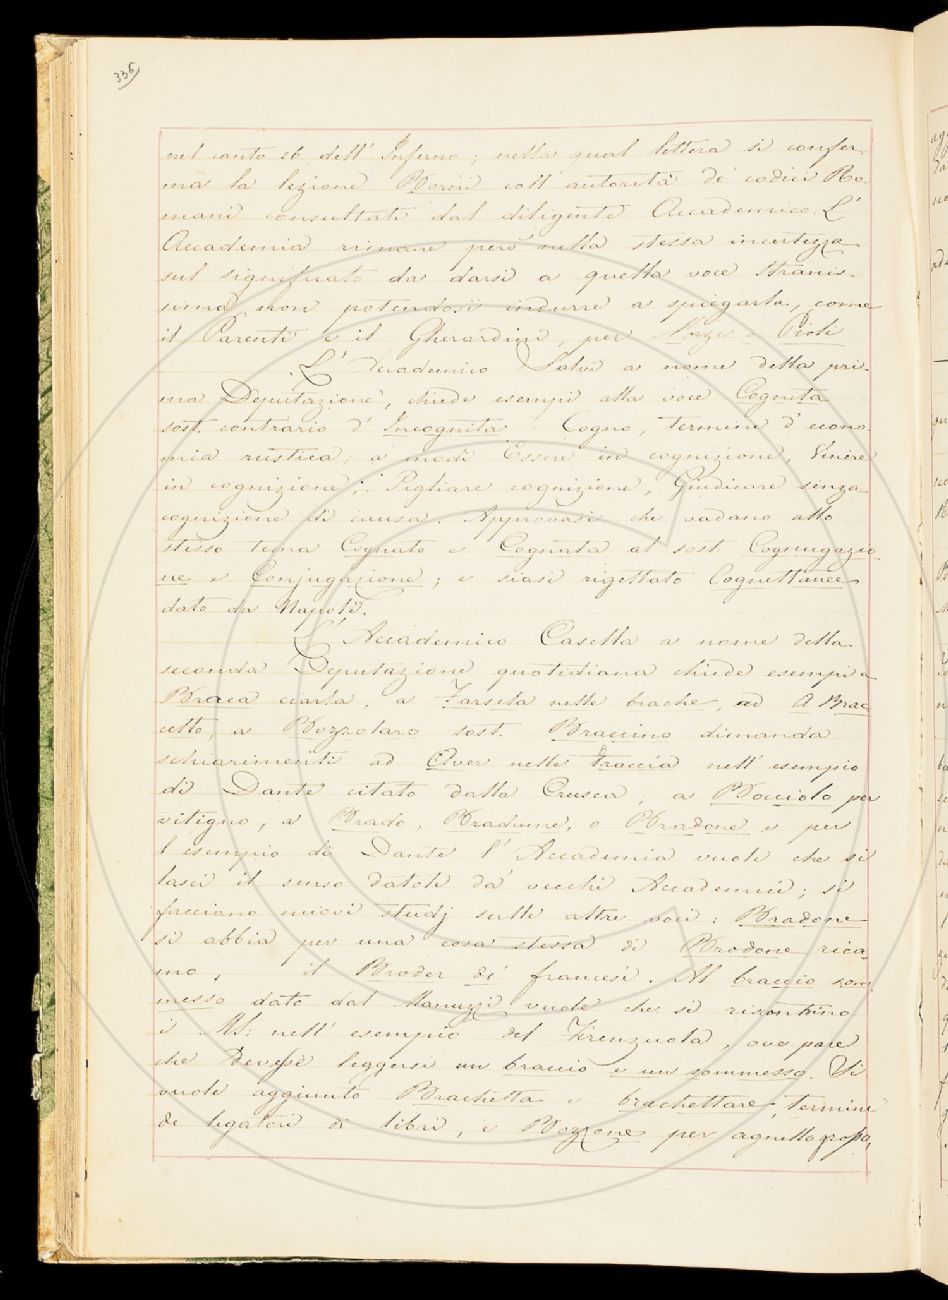 336
nel canto 26 dell' Inferno; nella qual lettera si confer-
ma la lezione Borni coll' autorità de' codici Ro-
mani consultati dal diligente Accademico. L'
Accademia rimane però nella stessa incertezza
sul significato da darsi a quella voce stranis-
sima non potendosi indurre a spiegarla, come
il Parenti e il Gherardini, per
L' Accademico Salvi a nome della pri-
ma Deputazione, chiede esempi alla voce Cognita
sost. contrario d' Incognita Cogno, termine d' econo-
mia rustica; a modi Essere in cognizione, Venire
in cognizione; Pigliare cognizione, Giudicare senza
cognizione di causa. Approvasi che vadano allo
stesso tema Cognato e Cognata al sost. Cogniugazio-
ne e Conjugazione; e siasi rigettato Cognettance
dato da Napoli.
L' Accademico Casella a nome della
seconda Deputazione quotidiana chiede esempi a
Braca ciarla, a Farsela nelle brache, ad A Brac
cetto, a Bozzolaro sost. Braccino dimanda
schiarimenti ad Aver nelle braccia nell' esempio
di Dante citato dalla Crusca; a Bocciolo per
vitigno, a Brado, Bradume, o Bradone e per
l' esempio di Dante l' Accademia vuole che si
lasci il senso datole da' vecchi Accademici; si
facciano nuovi studj sulle altre voci: Bradone
si abbia per una cosa stessa di Brodone rica-
mo, il Broder de' francesi. Al braccio som-
messo dato dal Manuzzi vuole che si riscontrino
i MS. nell' esempio del Firenzuola, ove pare
che devesi leggersi un braccio e un sommesso. Si
vuole aggiunto Brachetta e brachettare, termine
de' legatori di libri, e Bozzone per agnello grosso,